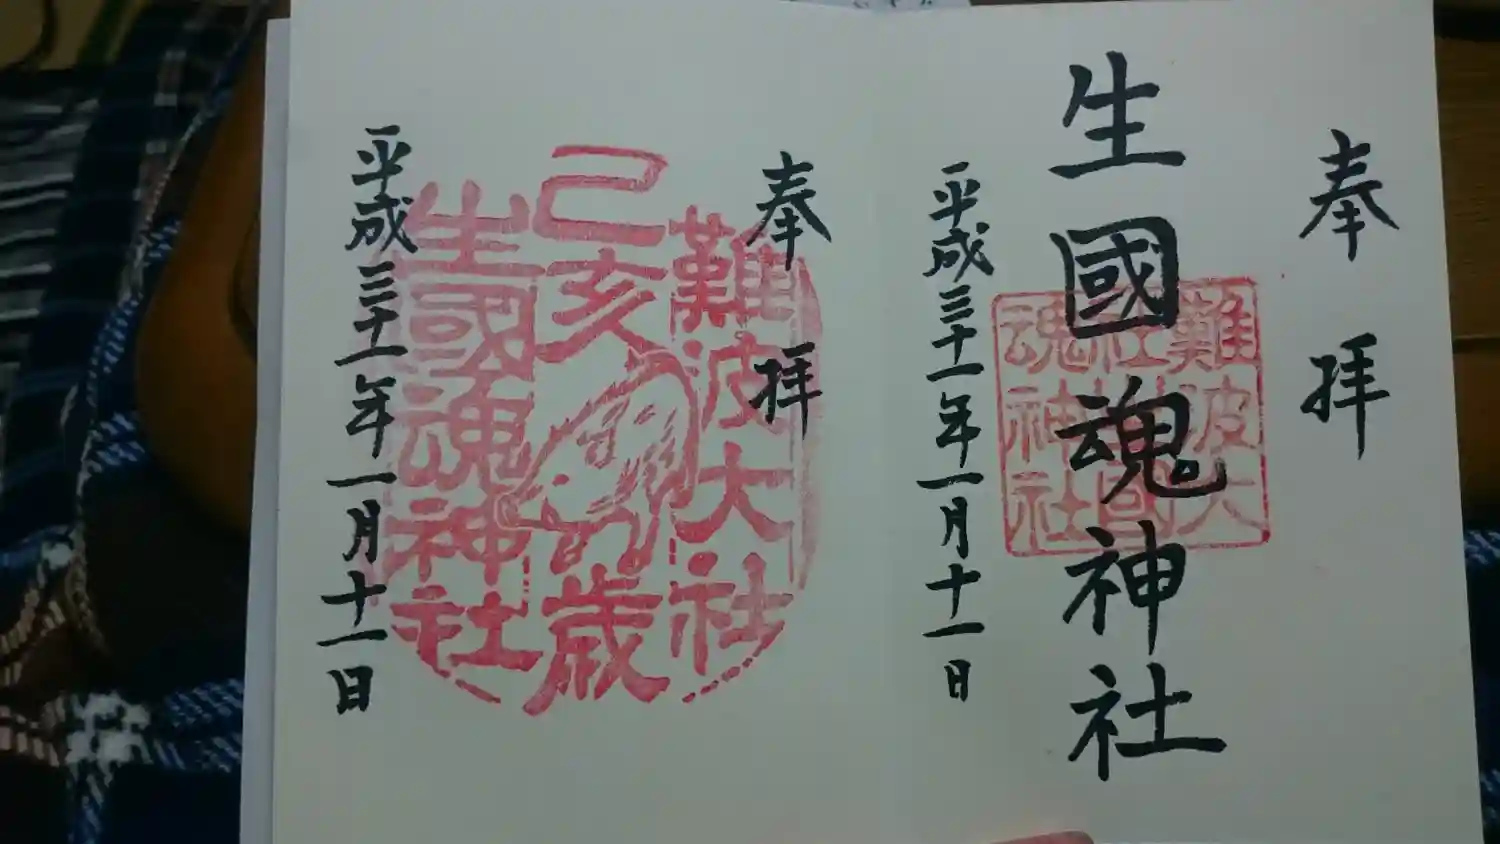 奉拝
生國魂神社
難波大
社生國
魂神社
平成三十一年一月十一日
奉拝
難波大社
己亥歳
生國魂神社
平成三十一年一月十一日